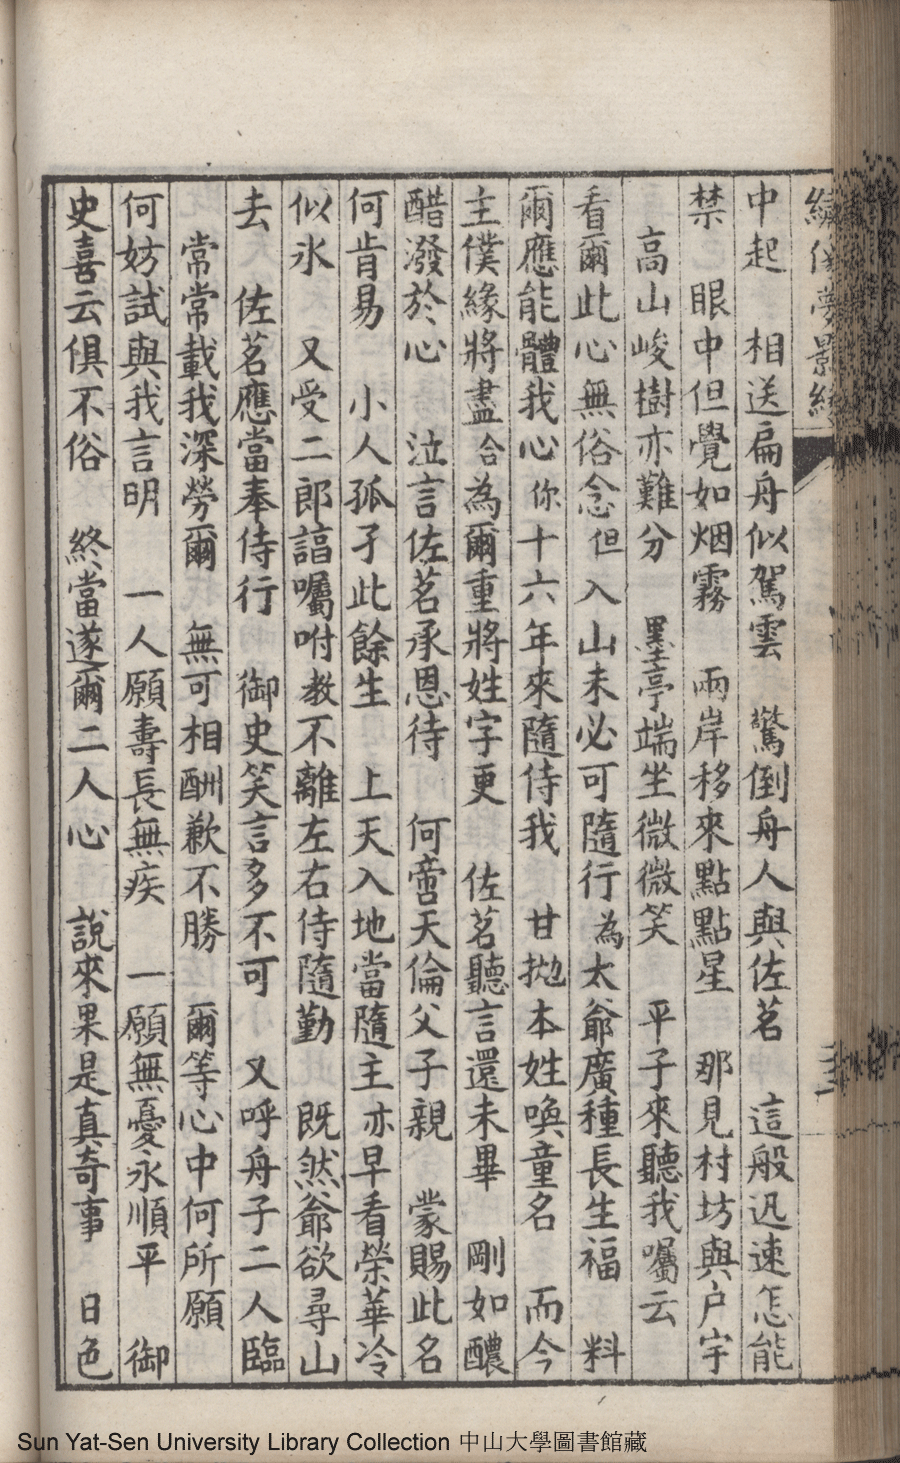 中起　相送扁舟似駕雲　驚倒舟人與佐茗　這般迅速怎能
禁　眼中但覺如烟霧　兩岸移來點點星　那見村坊與戶宇
高山峻樹亦難分　墨亭端坐微微笑　平子來聽我囑云
看爾此心無俗念　但入山未必可隨行　為太爺廣種長生福　料
爾應能體我心　你十六年來隨侍我　甘拋本姓喚童名　而今
主僕緣將盡　合為爾重將姓字更　佐茗聽言還未畢　剛如醲
醋潑於心　泣言佐茗承恩待　何啻天倫父子親　蒙賜此名
何肯易　小人孤孑此餘生　上天入地當隨主　亦早看榮華冷
似氷　又受二郎諄囑咐　教不離左右侍隨勤　既然爺欲尋山
去　佐茗應當奉侍行　御史笑言多不可　又呼舟子二人臨
常常載我深勞爾　無可相酬歉不勝　爾等心中何所願
何妨試與我言明　一人願壽長無疾　一願無憂永順平　御
史喜云俱不俗　終當遂爾二人心　說來果是真奇事　日色
Sun Yat-Sen University Library Collection 中山大學圖書館藏